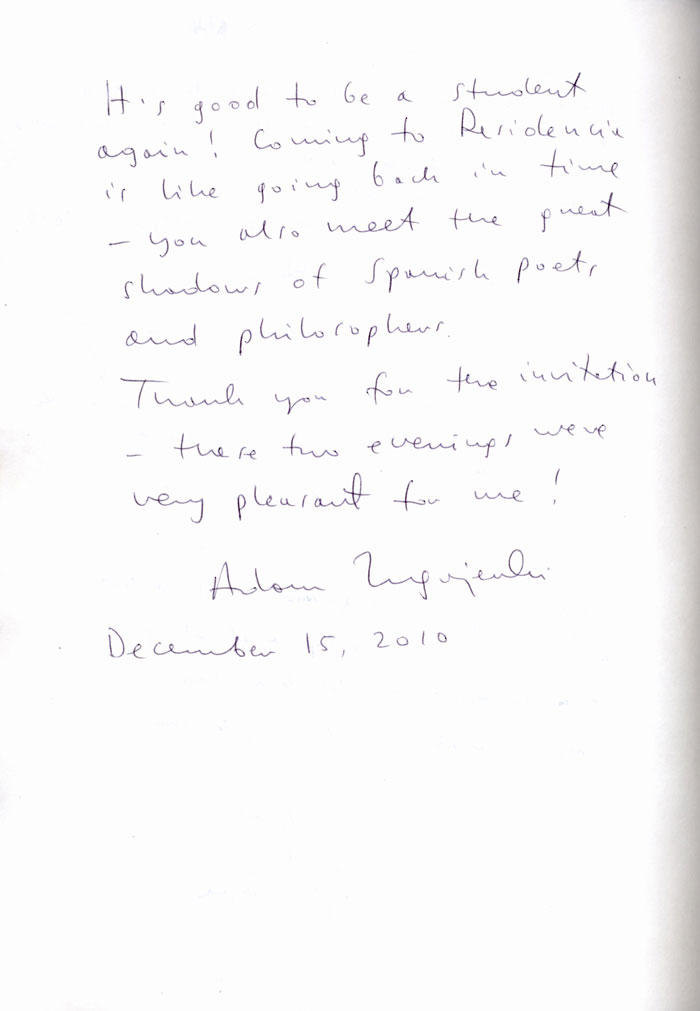 It's good to be a student
again! Coming to Residencia
is like going back in time
– you also meet the great
shadows of Spanish poets
and philosophers.
Thank you for the invitation
– these two evenings were
very pleasant for me!
Adam Zagajewski
December 15, 2010